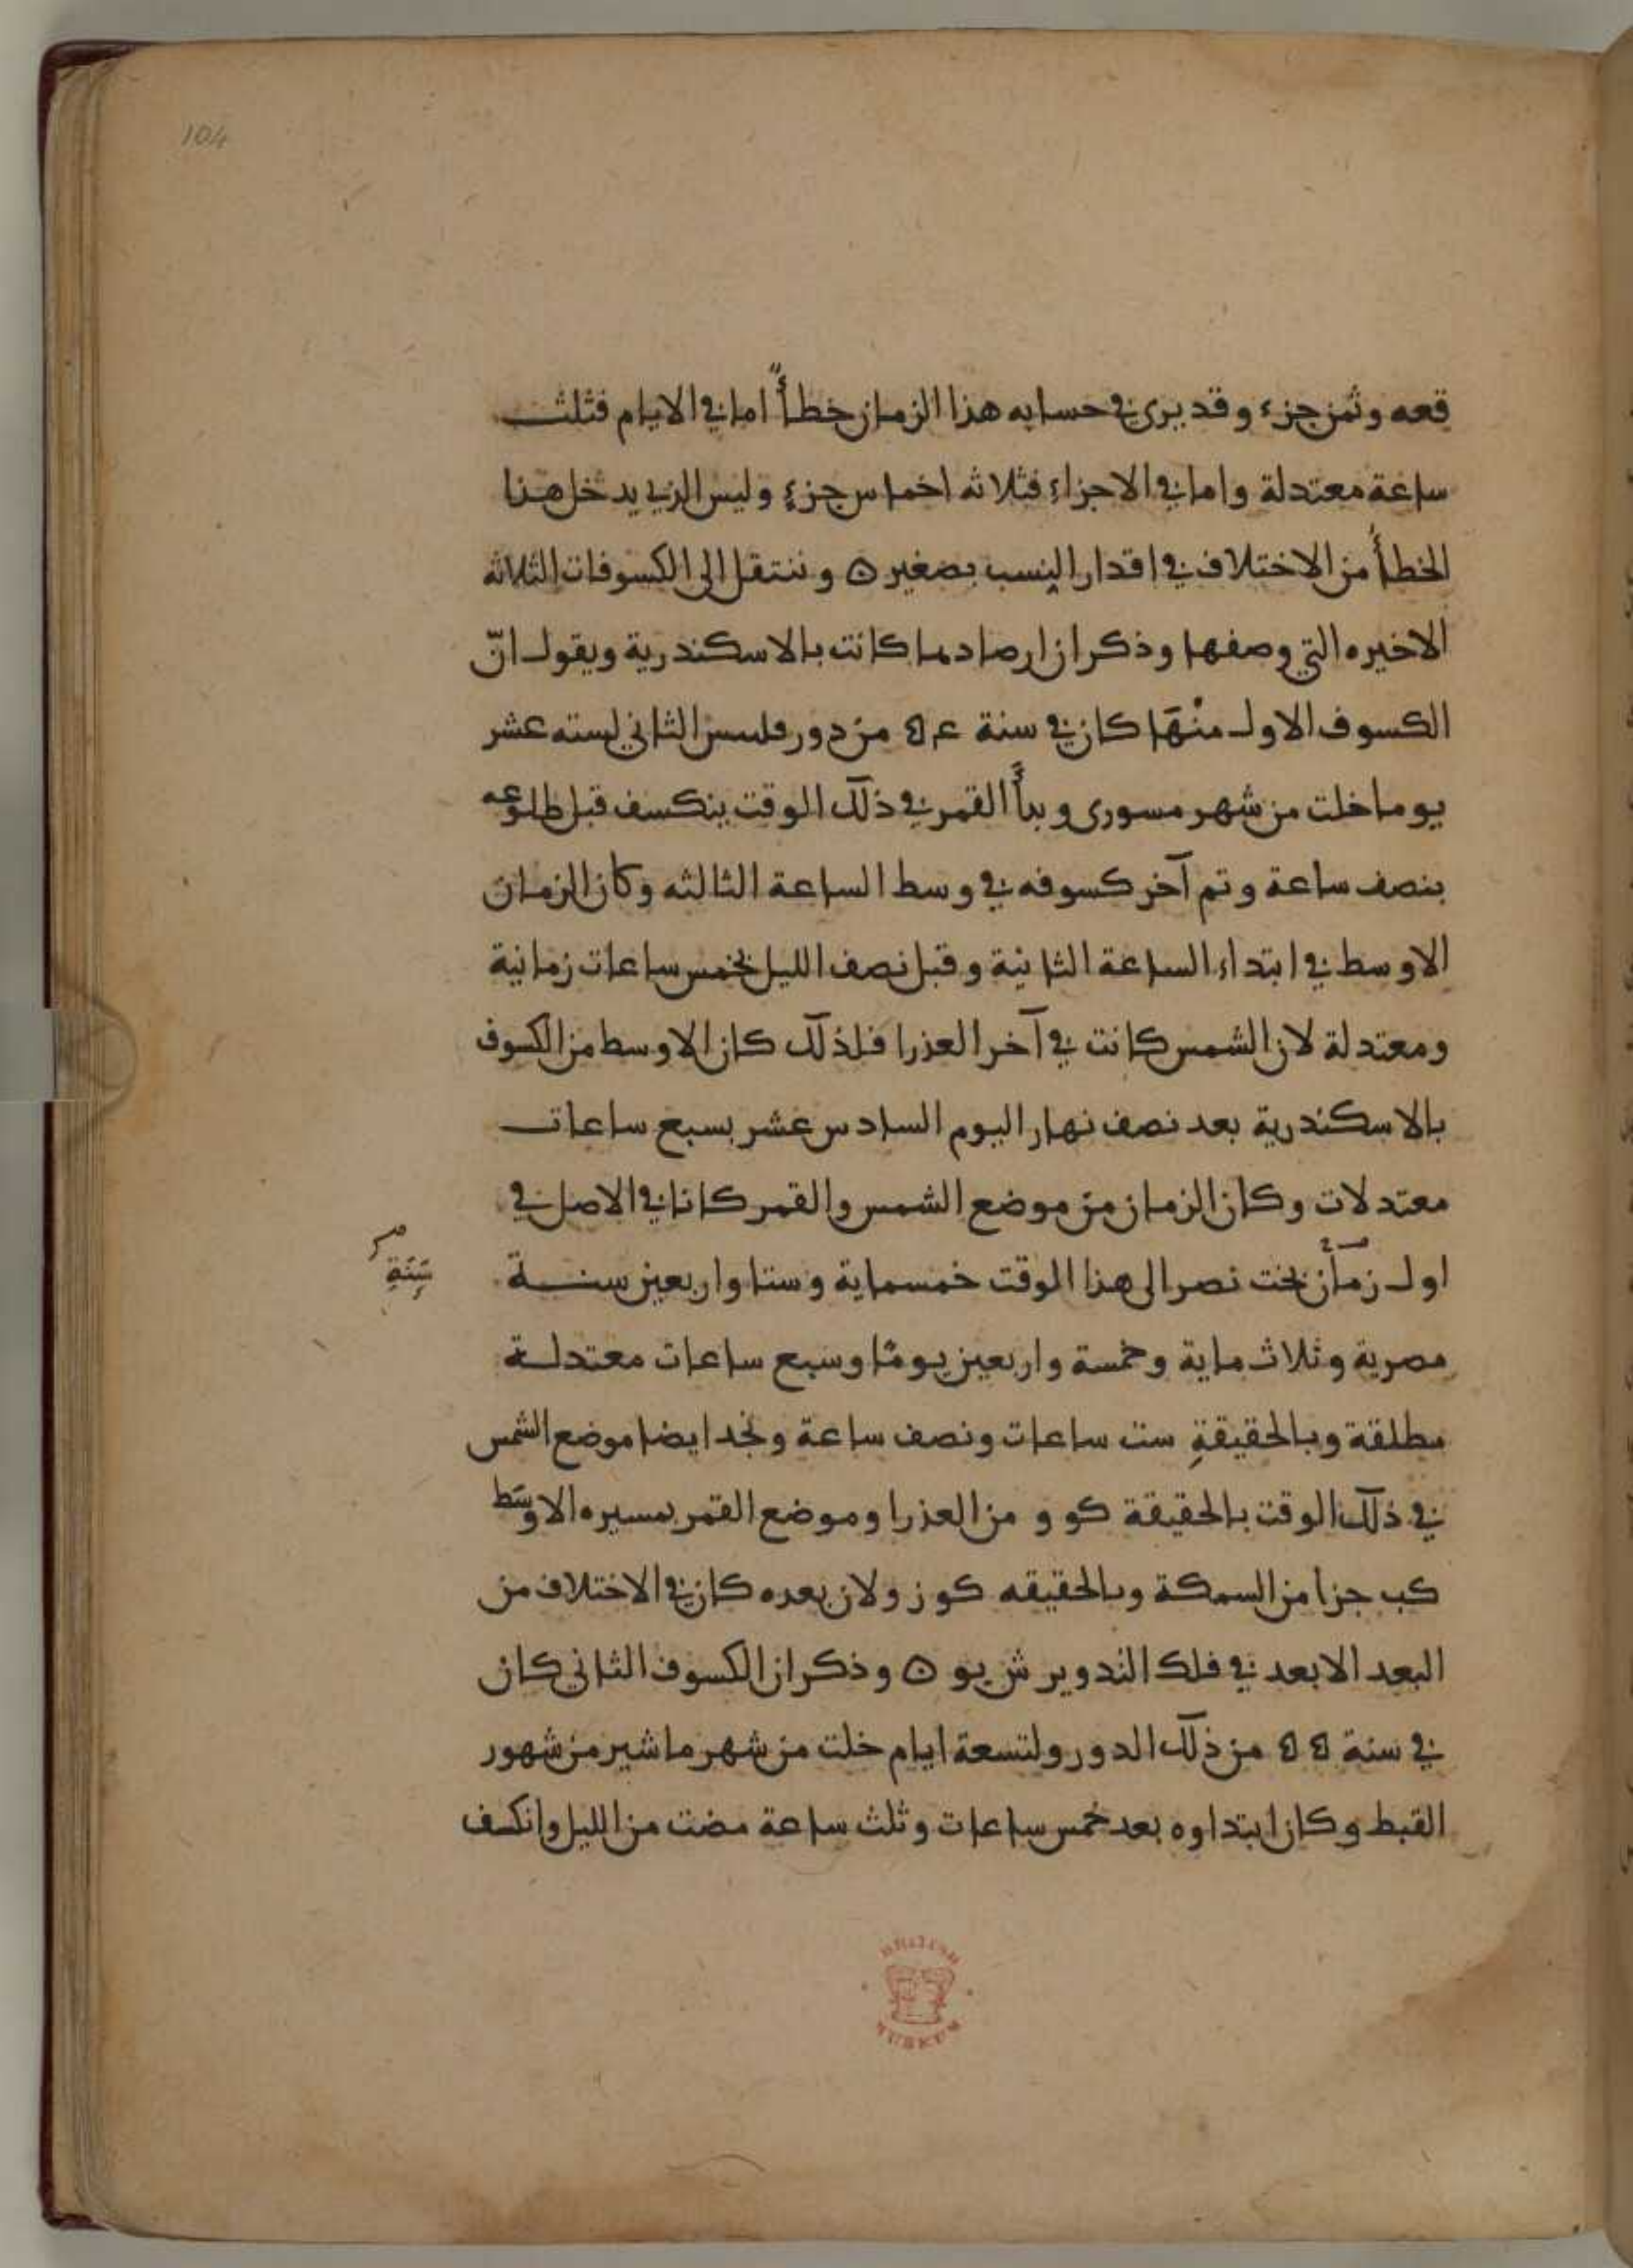 104
قعه وثمن جزء وقد يرى في حسابه هذا الزمان خطأ اما في الايام فثلث
ساعة معتدلة واما في الاجزاء فثلاثه اخماس جزء وليس الذي يدخل هذا
الخطأ من الاختلاف في اقدار النسب بصغير ۞ وننتقل الى الكسوفات الثلاثه
الاخيره التي وصفها وذكر ان ارصادها كانت بالاسكندرية ويقول انّ
الكسوف الاول منْهَا كان في سنة من دور الثاني لسته عشر
يوما خلت من شهر مسورى وبدأ القمر في ذلك الوقت ينكسف قبل طلوعه
بنصف ساعة وتم آخر كسوفه في وسط الساعة الثالثه وكان الزمان
الاوسط في ابتداء الساعة الثانية وقبل نصف الليل بخمس ساعات زمانية
ومعتدلة لان الشمس كانت في آخر العذرا فلذلك كان الاوسط من الكسوف
بالاسكندرية بعد نصف نهار اليوم السادس عشر بسبع ساعات
معتدلات وكان الزمان من موضع الشمس والقمر كانا في الاصل في
اول زمان بخت نصر الى هذا الوقت خمسماية وستا واربعين سنة
سَنَةٍ
مصرية وثلاث ماية وخمسة واربعين يومًا وسبع ساعات معتدلة
مطلقة وبالحقيقةِ ست ساعات ونصف ساعة ونجد ايضا موضع الشمس
في ذلك الوقت بالحقيقة كو و من العذرا وموضع القمر بمسيره الاوسَط
كب جزا من السمكة وبالحقيقه كو ز ولان بعده كان في الاختلاف من
البعد الابعد في فلك التدوير ش يو ۞ وذكر ان الكسوف الثاني كان
في سنة من ذلك الدور ولتسعة ايام خلت من شهر ماشير من شهور
القبط وكان ابتداوه بعد خمس ساعات وثلث ساعة مضت من الليل وانكسف
BRITISH
MUSEUM